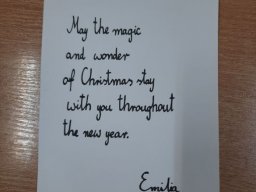 May the magic
and wonder
of Christmas stay
with you throughout
the new year.
Emilia